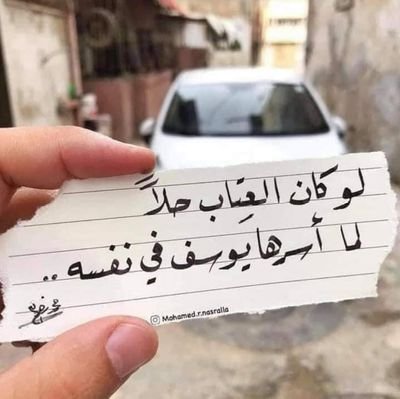 لو كان العِتاب حلاً
لما أسرها يوسف في نفسه ..
Mohamed.r.nasralla